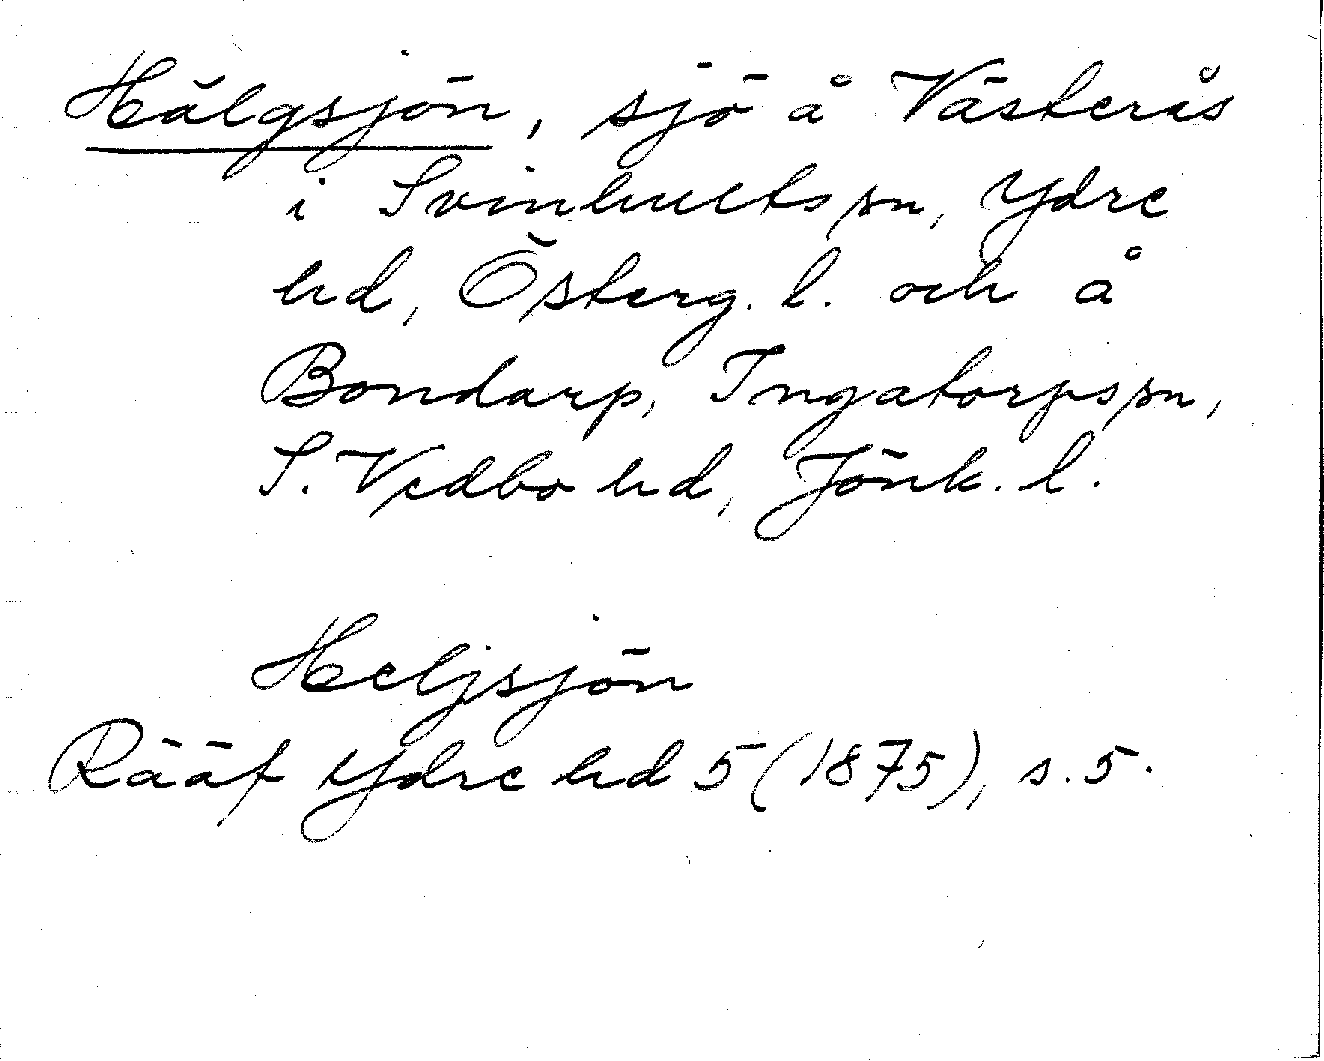 Hälgsjön, sjö å Västerås
i Svinhults sn, Ydre
hd, Österg. l. och å
Bondarp, Ingatorps sn,
S. Vedbo hd, Jönk. l.
Heljsjön
Rääf Ydre hd 5 (1875), s. 5.